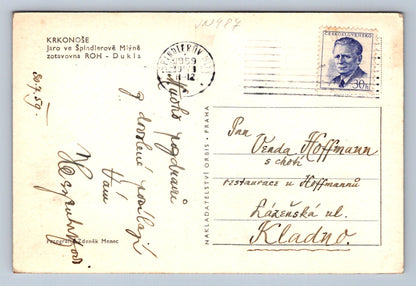 VN487
KRKONOŠE
Jaro ve Špindlerově Mlýně
zotavovna ROH - Dukla
ČESKOSLOVENSKO
30h
11-12
Mnoho pozdravů
z dovolené posílají
Vám
Fotografie Zdeněk Menec
NAKLADATELSTVÍ ORBIS · PRAHA
Pan
Venda Hoffmann
s chotí
restaurace u Hoffmannů
Lázeňská ul.
Kladno.